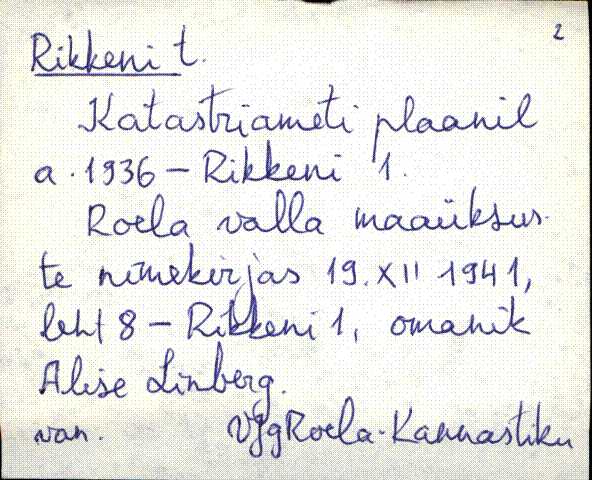 2
Rikkeni t.
Katastriameti plaanil
a. 1936 – Rikkeni 1.
Roela valla maaüksus-
te nimekirjas 19. XII 1941,
leht 8 – Rikkeni 1, omanik
Alise Linberg.
van. VJg Roela-Kannastiku